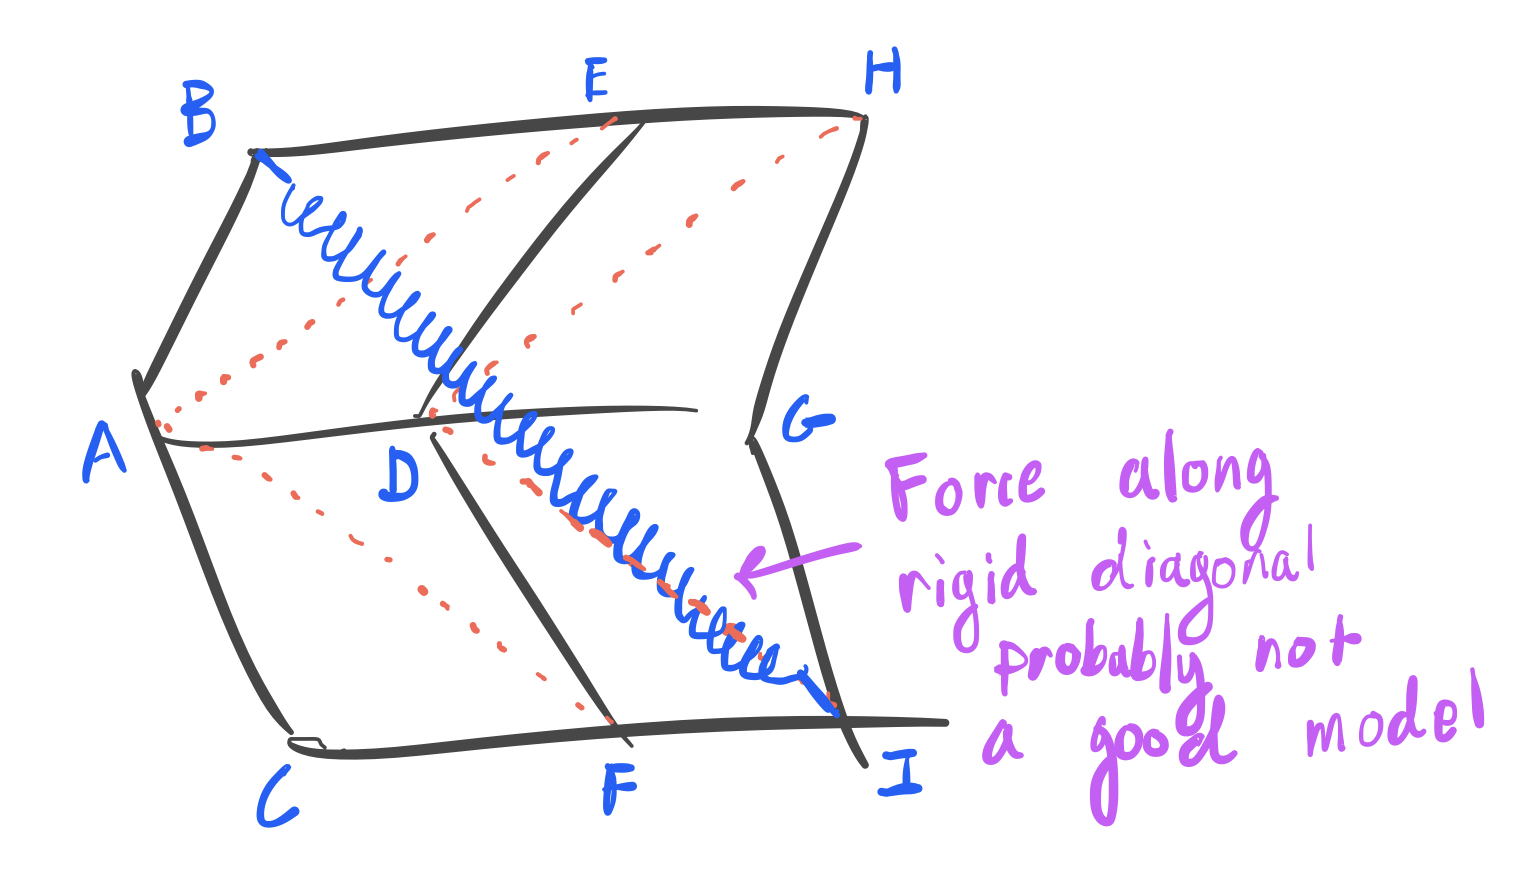 B
E
H
A
D
G
Force along
rigid diagonal
probably not
a good model
C
F
I